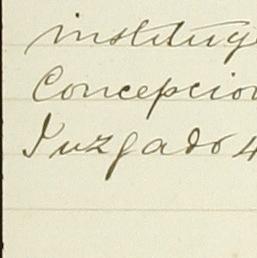 instituy
Concepcion
Juzgado 4